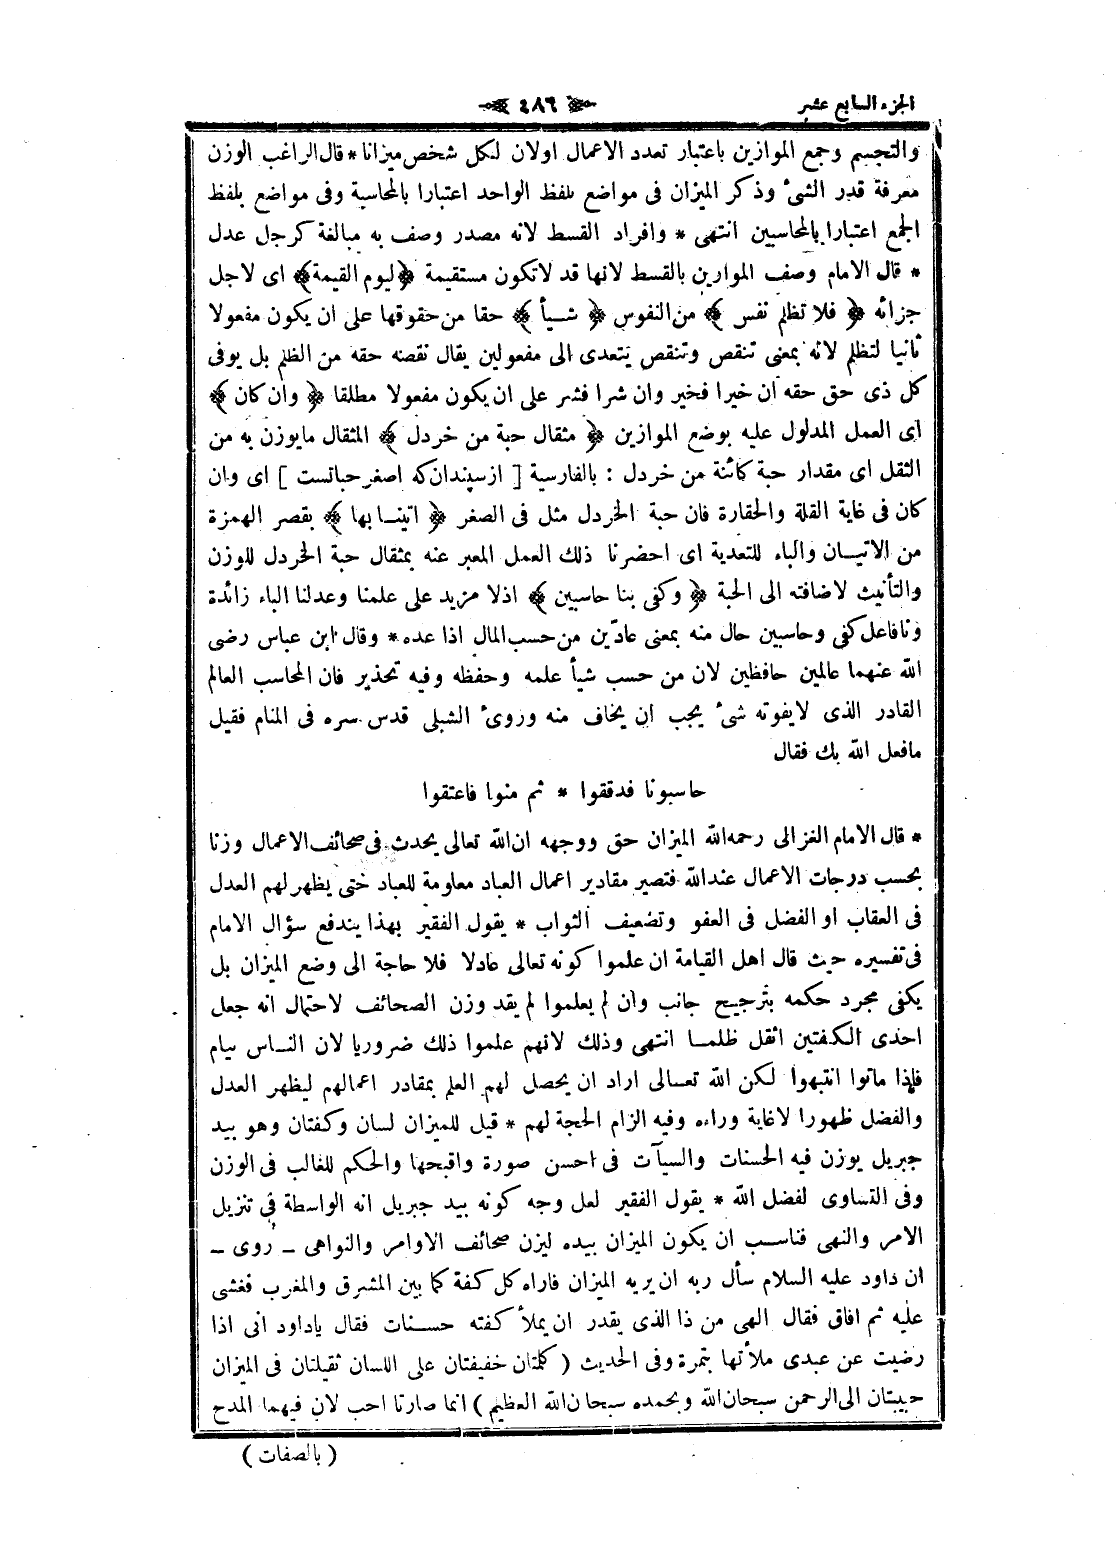 الجزء السابع عشر
٤٨٦
والتجسم وجمع الموازين باعتبار تعدد الاعمال اولان لكل شخص ميزانا * قال الراغب الوزن
معرفة قدر الشئ وذكر الميزان فى مواضع بلفظ الواحد اعتبارا بالمحاسبة وفى مواضع بلفظ
الجمع اعتبارا بالمحاسبين انتهى * وافراد القسط لانه مصدر وصف به مبالغة كرجل عدل
* قال الامام وصف الموازين بالقسط لانها قد لاتكون مستقيمة ﴿ليوم القيمة﴾ اى لاجل
جزائه ﴿ فلا تظلم نفس ﴾ من النفوس ﴿ شيأ ﴾ حقا من حقوقها على ان يكون مفعولا
ثانيا لتظلم لانه بمعنى تنقص وتنقص يتعدى الى مفعولين يقال نقصه حقه من الظلم بل يوفى
كل ذى حق حقه ان خيرا فخير وان شرا فشر على ان يكون مفعولا مطلقا ﴿ وان كان ﴾
اى العمل المدلول عليه بوضع الموازين ﴿ مثقال حبة من خردل ﴾ المثقال مايوزن به من
الثقل اى مقدار حبة كائنة من خردل : بالفارسية [ ازسپندان كه اصغر حباتست ] اى وان
كان فى غاية القلة والحقارة فان حبة الخردل مثل فى الصغر ﴿ اتينا بها ﴾ بقصر الهمزة
من الاتيان والباء للتعدية اى احضرنا ذلك العمل المعبر عنه بمثقال حبة الخردل للوزن
والتأنيث لاضافته الى الحبة ﴿ وكفى بنا حاسبين ﴾ اذلا مزيد على علمنا وعدلنا الباء زائدة
ونا فاعل كفى وحاسبين حال منه بمعنى عادّين من حسب المال اذا عده * وقال ابن عباس رضى
الله عنهما عالمين حافظين لان من حسب شيأ علمه وحفظه وفيه تحذير فان المحاسب العالم
القادر الذى لايفوته شئ يجب ان يخاف منه وروى الشبلى قدس سره فى المنام فقيل
مافعل الله بك فقال
حاسبونا فدققوا * ثم منوا فاعتقوا
* قال الامام الغزالى رحمه الله الميزان حق ووجهه ان الله تعالى يحدث فى صحائف الاعمال وزنا
بحسب درجات الاعمال عند الله فتصير مقادير اعمال العباد معلومة للعباد حتى يظهر لهم العدل
فى العقاب او الفضل فى العفو وتضعيف الثواب * يقول الفقير بهذا يندفع سؤال الامام
فى تفسيره حيث قال اهل القيامة ان علموا كونه تعالى عادلا فلا حاجة الى وضع الميزان بل
يكفى مجرد حكمه بترجيح جانب وان لم يعلموا لم يفد وزن الصحائف لاحتمال انه جعل
احدى الكفتين اثقل ظلما انتهى وذلك لانهم علموا ذلك ضروريا لان الناس نيام
فاذا ماتوا انتبهوا لكن الله تعالى اراد ان يحصل لهم العلم بمقادر اعمالهم ليظهر العدل
والفضل ظهورا لاغاية وراءه وفيه الزام الحجة لهم * قيل للميزان لسان وكفتان وهو بيد
جبريل يوزن فيه الحسنات والسيآت فى احسن صورة واقبحها والحكم للغالب فى الوزن
وفى التساوى لفضل الله * يقول الفقير لعل وجه كونه بيد جبريل انه الواسطة فى تنزيل
الامر والنهى فناسب ان يكون الميزان بيده ليزن صحائف الاوامر والنواهى ـ رُوى ـ
ان داود عليه السلام سأل ربه ان يريه الميزان فاراه كل كفة كما بين المشرق والمغرب فغشى
عليه ثم افاق فقال الهى من ذا الذى يقدر ان يملأ كفته حسنات فقال ياداود انى اذا
رضيت عن عبدى ملأتها بتمرة وفى الحديث ( كلمتان خفيفتان على اللسان ثقيلتان فى الميزان
حبيبتان الى الرحمن سبحان الله وبحمده سبحان الله العظيم ) انما صارتا احب لان فيهما المدح
( بالصفات )